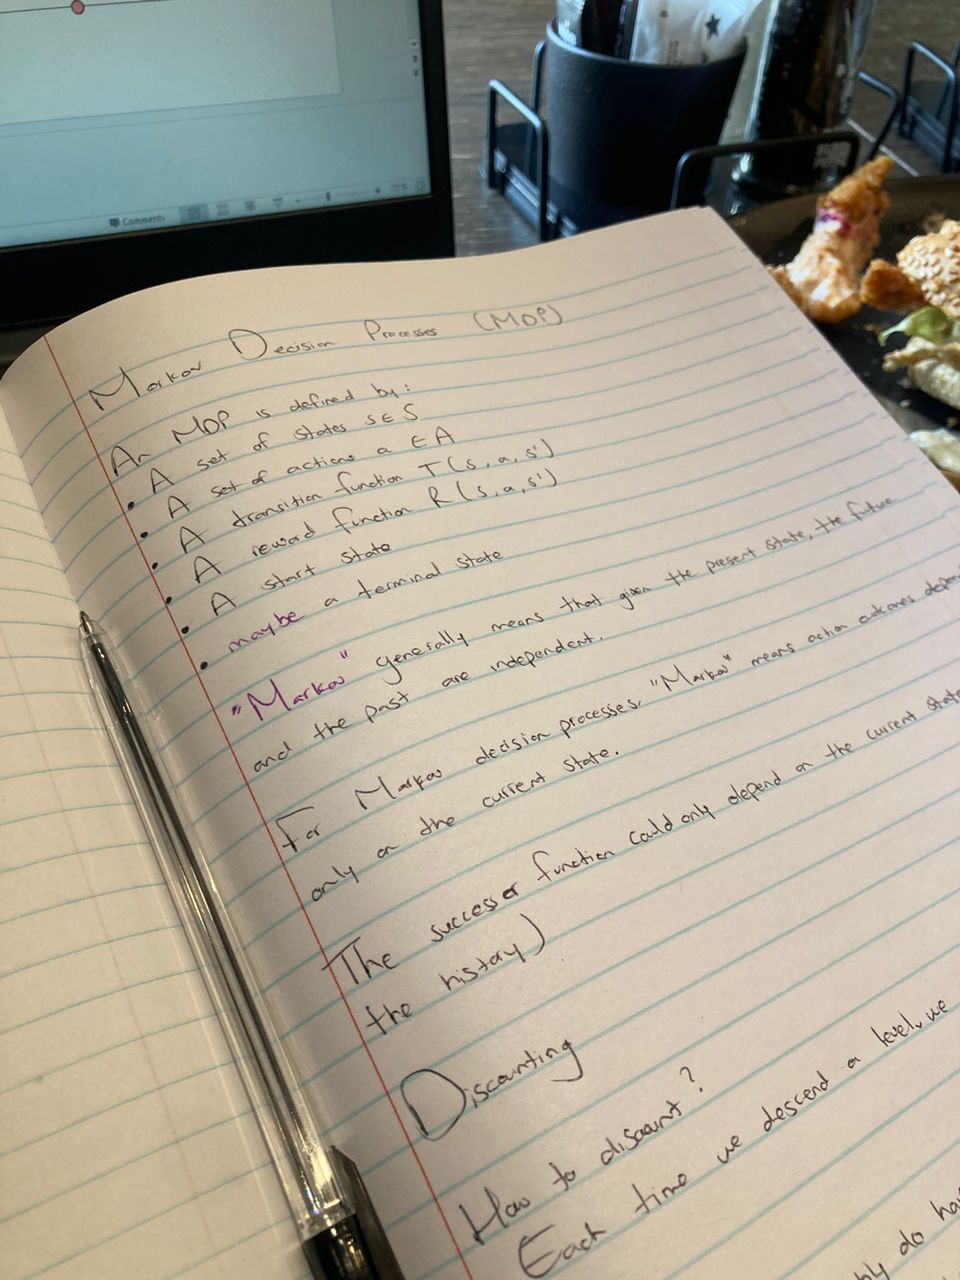 Comments
Markov Decision Processes (MDP)
An MDP is defined by:
• A set of states s ∈ S
• A set of actions a ∈ A
• A transition function T(s, a, s')
• A reward function R(s, a, s')
• A start state
• maybe a terminal state
"Markov" generally means that given the present state, the future
and the past are independent.
For Markov decision processes, "Markov" means action outcomes depend
only on the current state.
The successor function could only depend on the current state
the history)
Discounting
How to discount?
Each time we descend a level, we
do